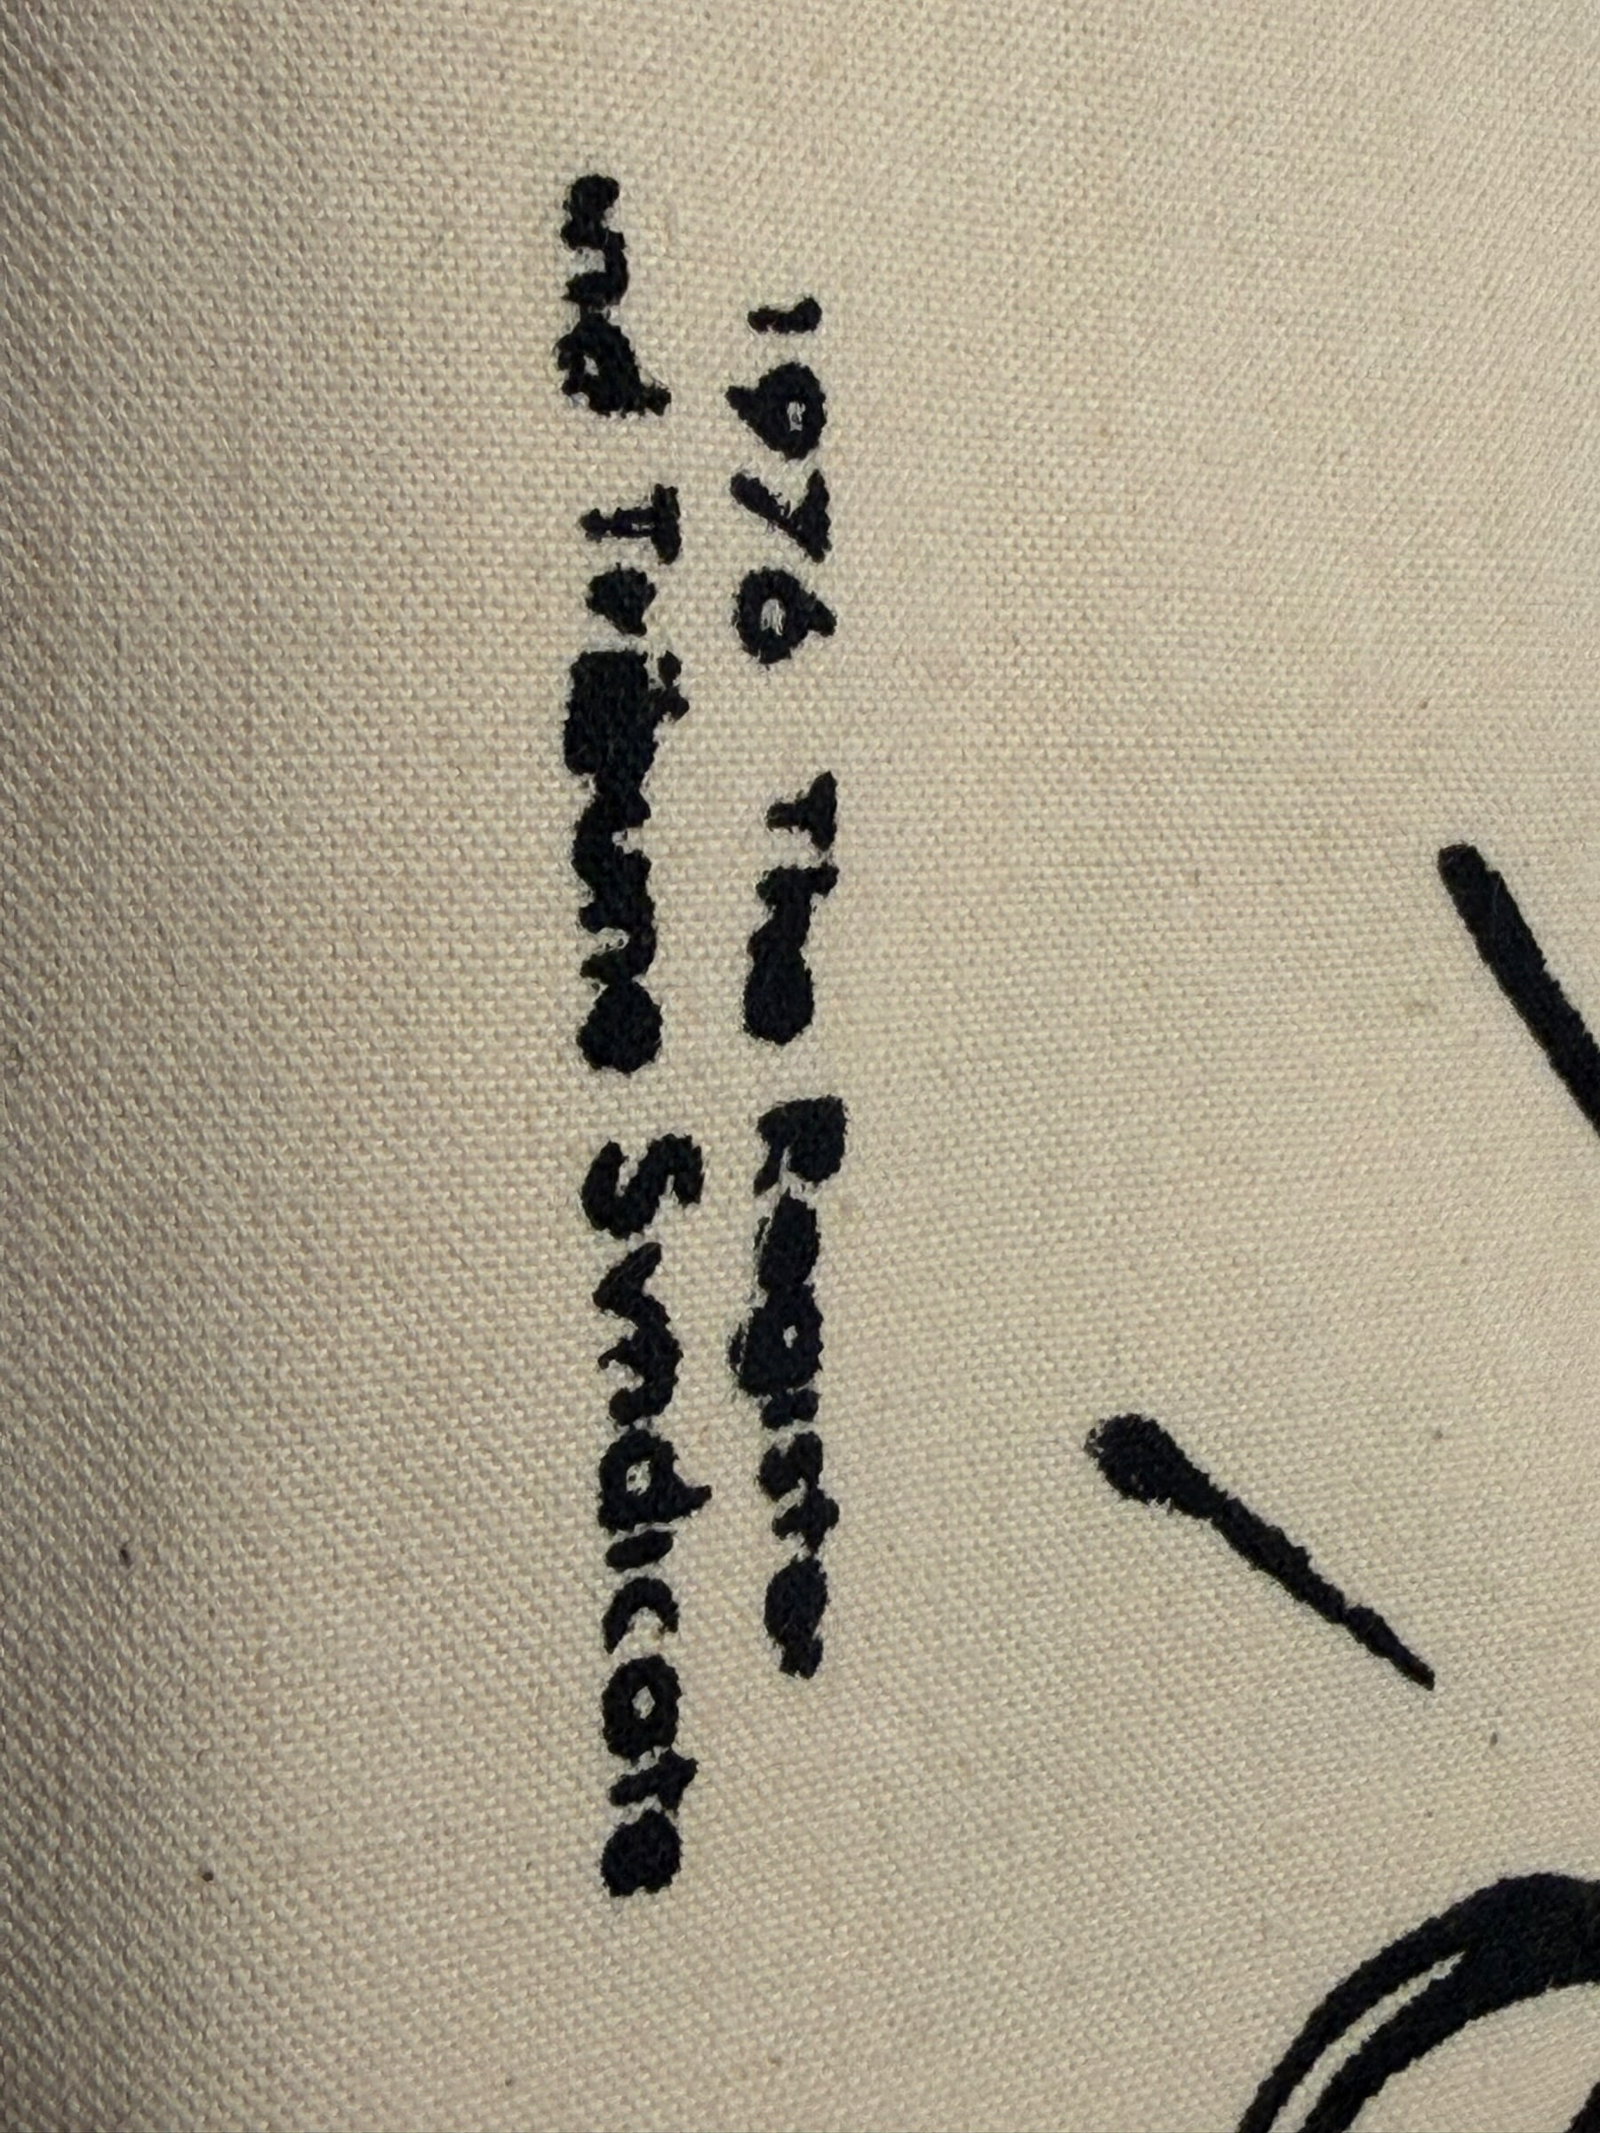 1976 The Register
and Tribune Syndicate